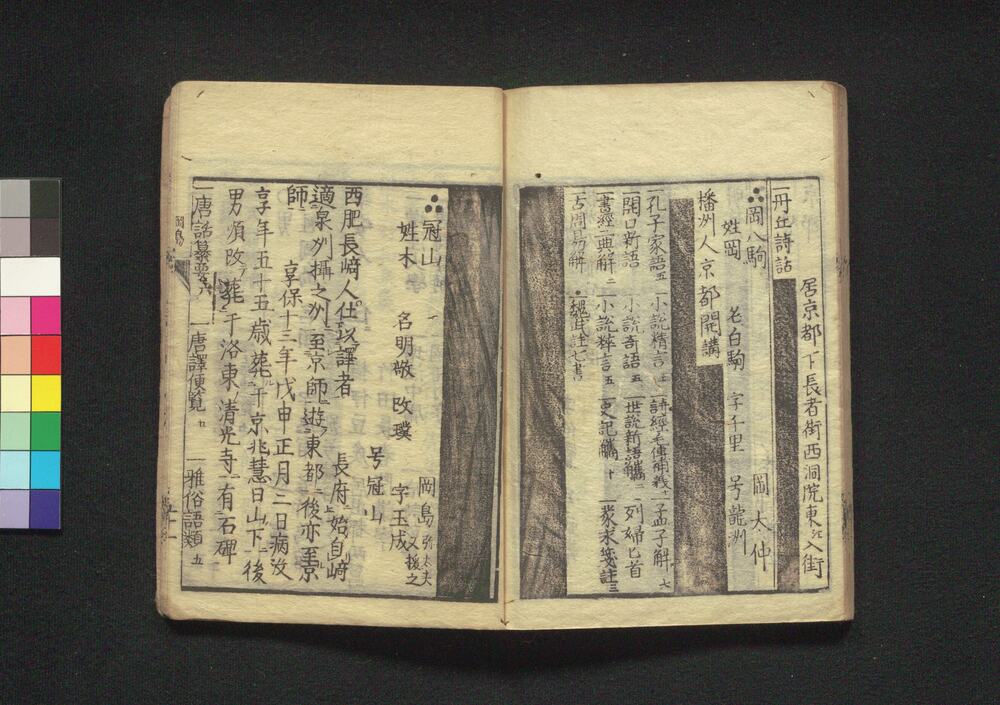 居京都下長者街西洞院東江入街
一丹丘詩話
岡八駒 岡大仲
姓岡 名白駒 字千里 号龍洲
播州人京都開講
一孔子家語五 一小説精言 一詩経毛傳補義 一孟子解
一開口新語 一小説奇語五 一世説新語觿 一列婦匕首
一書經二典解二 一小説粋言五 一史記觿十 一蒙求箋註三
魏武註七書
冠山 岡島 弥太夫 又援之
姓木 名明敬 改璞 字玉成
号冠山
西肥長﨑人仕以譯者 長府始自﨑
適泉州攝之州至京師遊東都後亦至京
師 享保十三年戊申正月二日病没
享年五十五歳葬于京兆慧日山下後
男 改葬于洛東清光寺有石碑
一唐話纂要六 一唐譯便覧五 一雅俗語類五